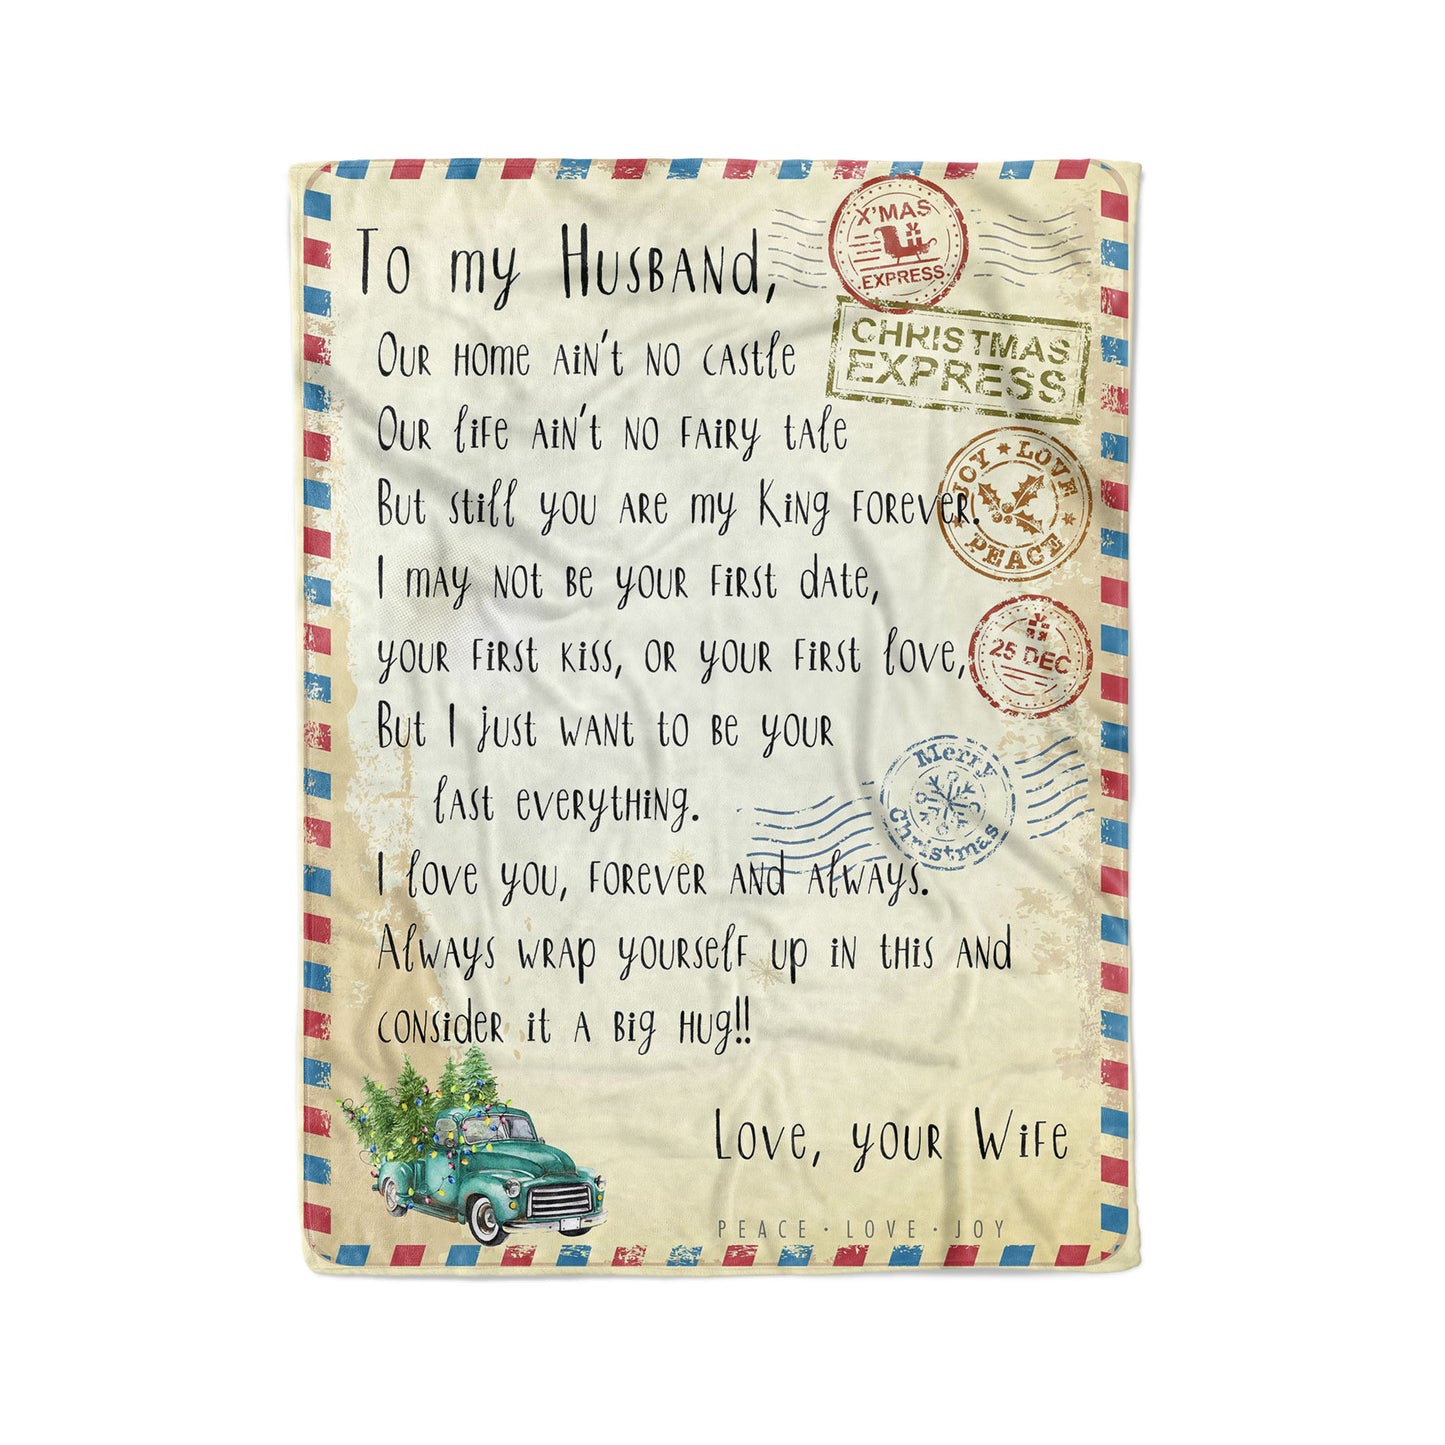 To my Husband,
Our home ain't no castle
Our life ain't no fairy tale
But still you are my King forever.
I may not be your first date,
your first kiss, or your first love,
But I just want to be your
last everything.
I love you, forever and always.
Always wrap yourself up in this and
consider it a big hug!!
Love, your Wife
PEACE · LOVE · JOY
X'MAS
EXPRESS
CHRISTMAS
EXPRESS
JOY ★ LOVE
★ PEACE ★
25 DEC
Merry
Christmas